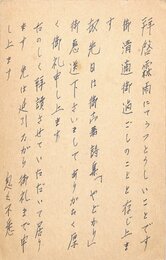 拝啓 霖雨にてうつとうしいことです
御清適御過ごしのことと存じ上ま
す
扨先日は御高著詩集「やどかり」
御恵送下さいましてありがたく厚
く御礼申し上ます
たのしく拝読させていただいて居り
ます 先は延引ながら御礼まで申
し上ます
怱々不悉